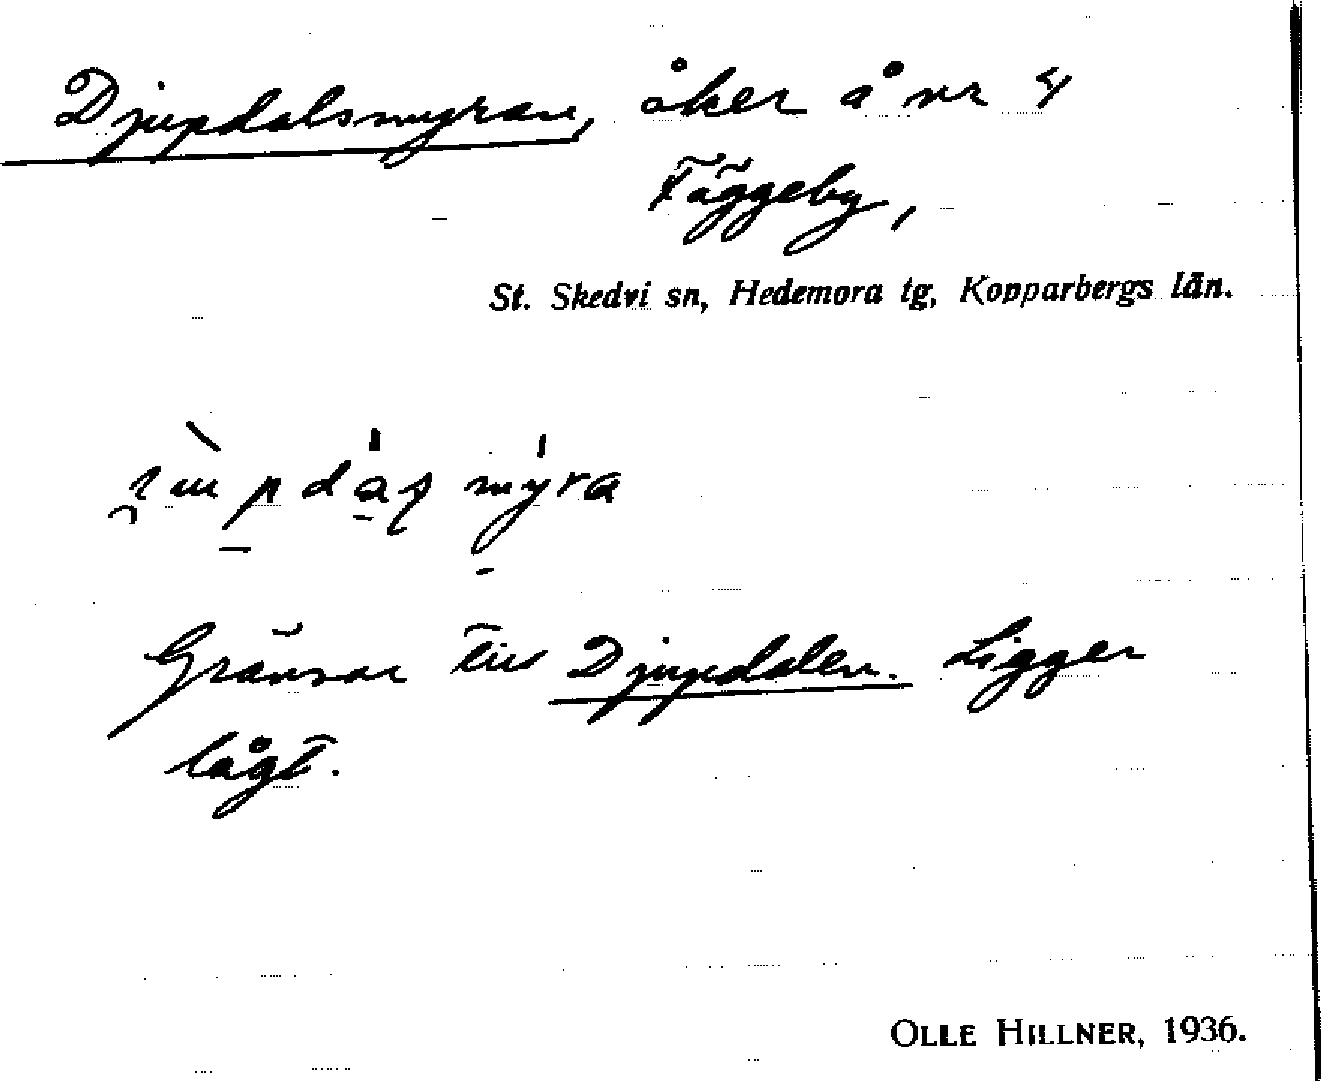 Djupdalsmyran, åker å nr 4
Fäggeby,
St. Skedvi sn, Hedemora tg, Kopparbergs län.
Gränsar till Djupdalen. Ligger
lågt.
OLLE HILLNER, 1936.